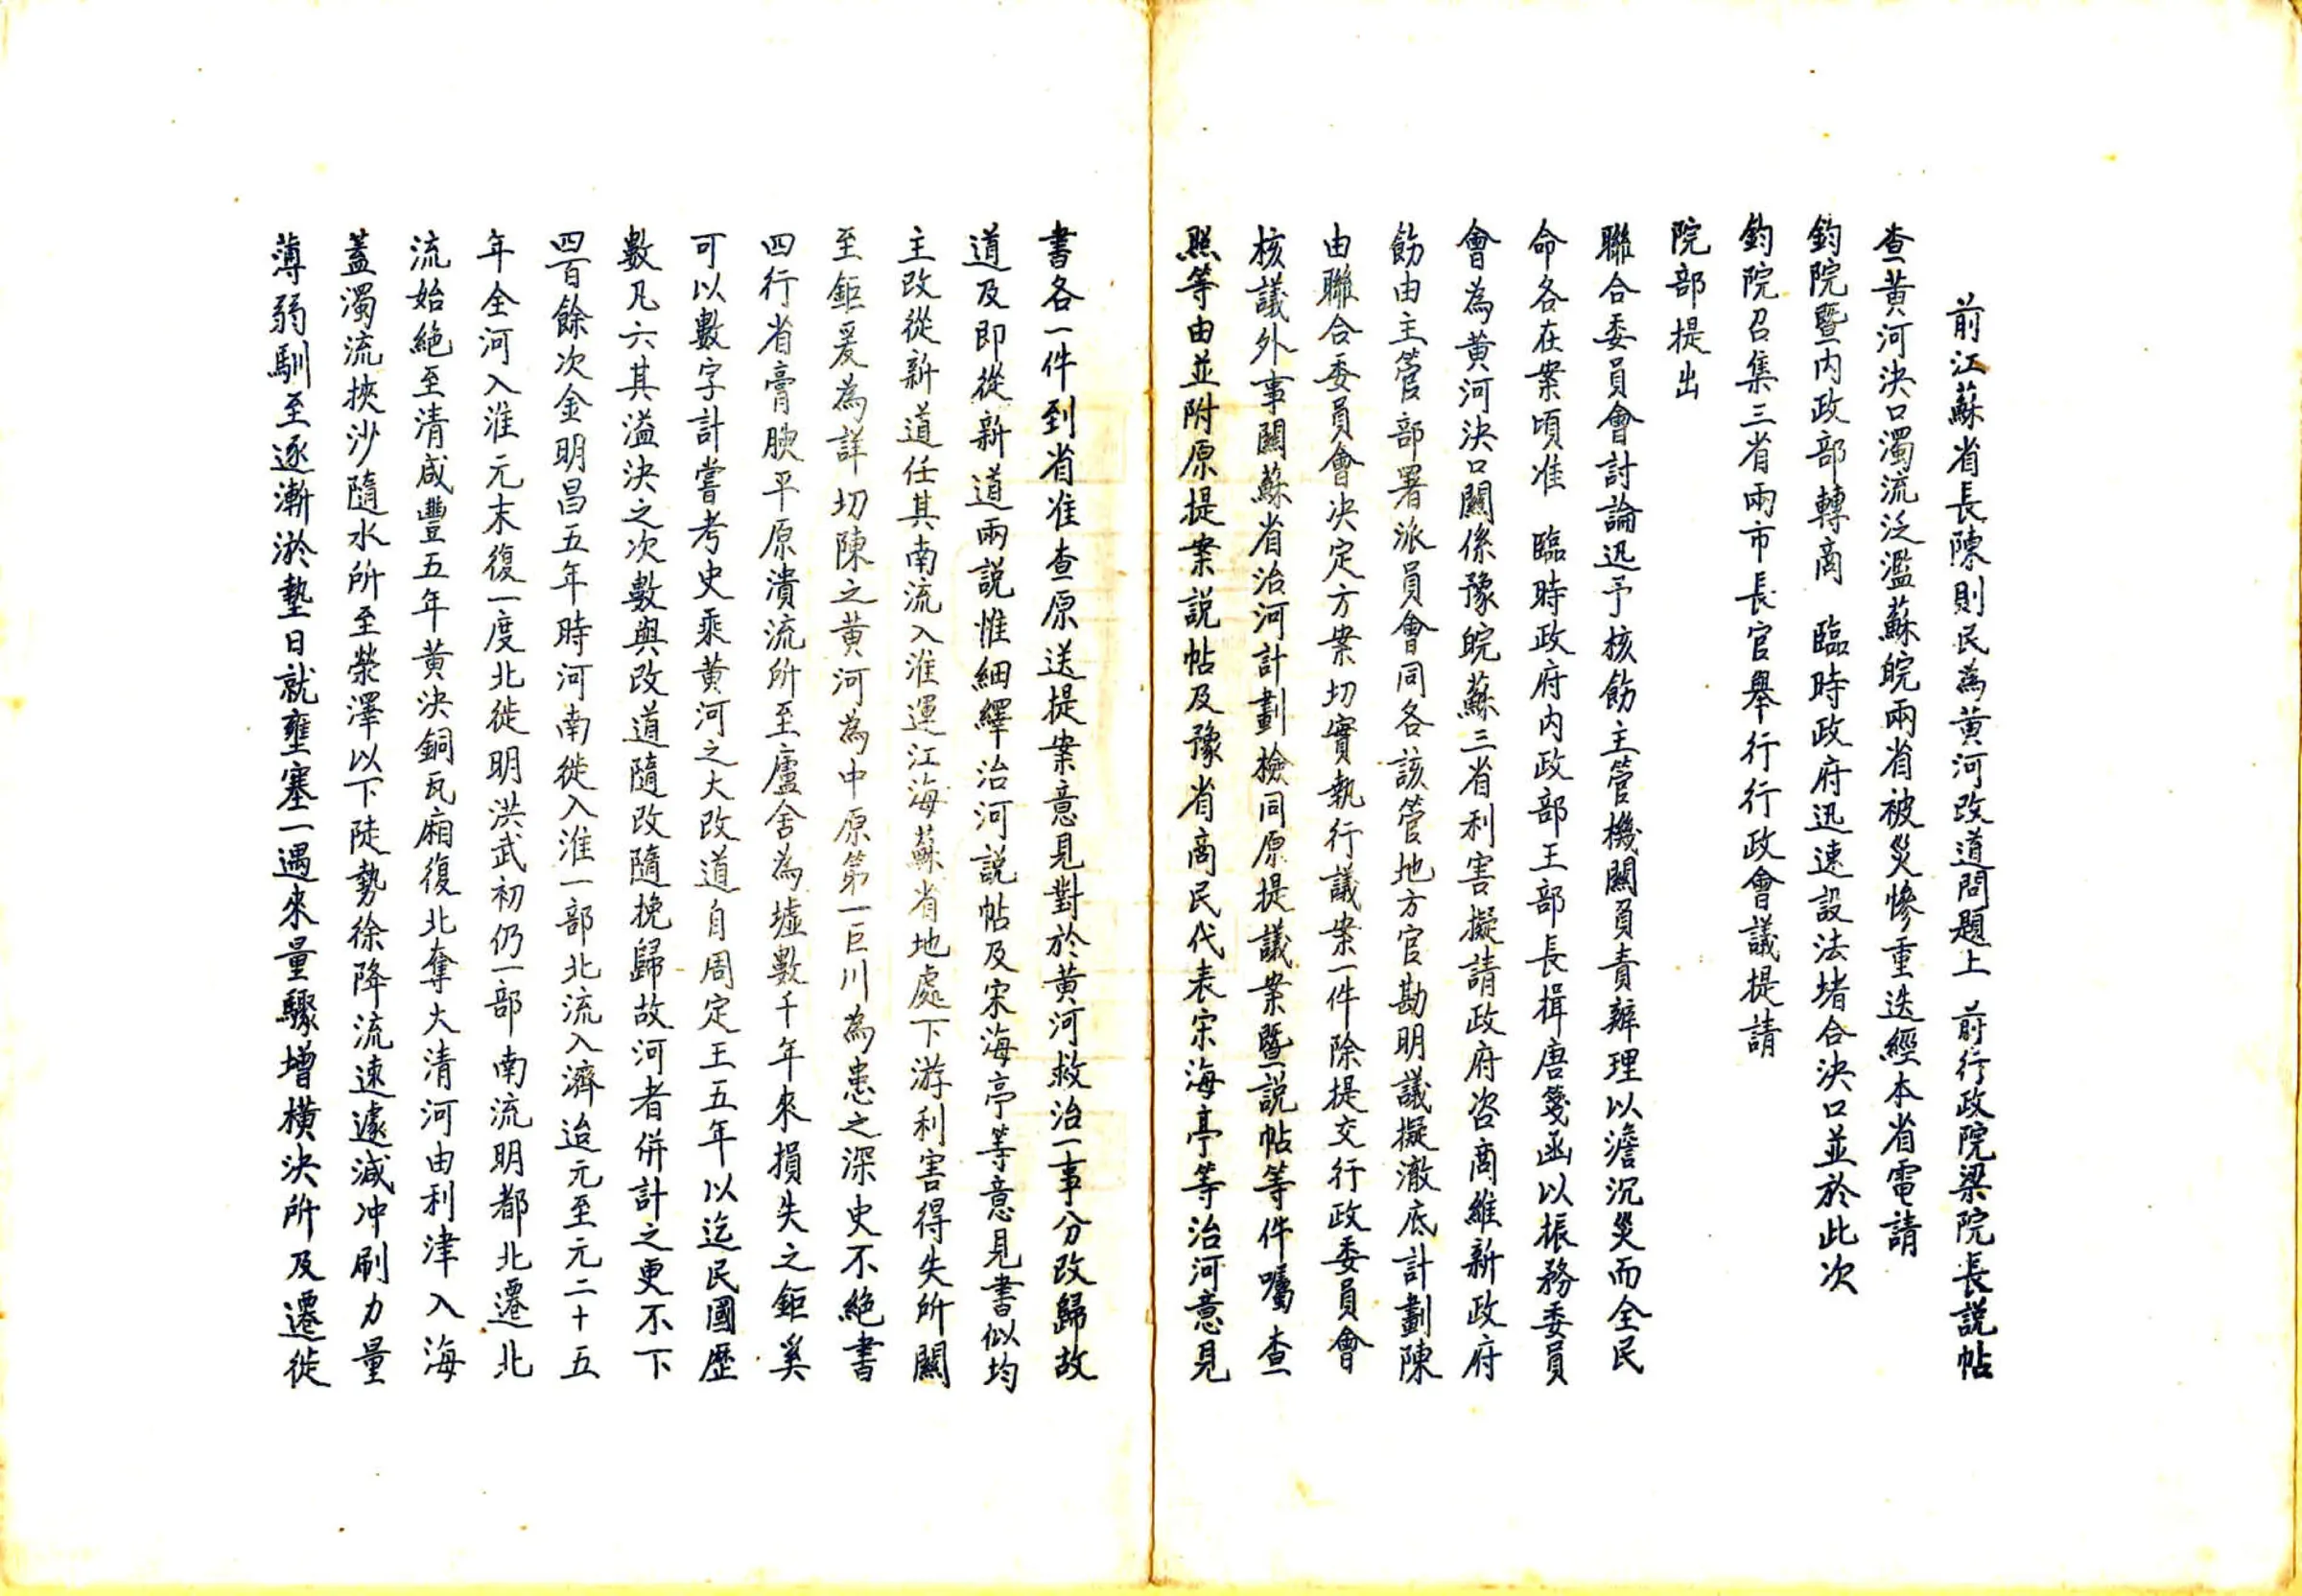 前江蘇省長陳則民為黄河改道問題上　前行政院梁院長說帖
查黄河決口濁流泛濫蘇皖兩省被災慘重迭經本省電請
鈞院暨内政部轉商　臨時政府迅速設法堵合決口並於此次
鈞院召集三省兩市長官舉行行政會議提請
院部提出
聯合委員會討論迅予核飭主管機關負責辦理以澹沉災而全民
命各在案頃准　臨時政府内政部王部長揖唐箋函以振務委員
會為黄河決口關係豫皖蘇三省利害擬請政府咨商維新政府
飭由主管部署派員會同各該管地方官勘明議擬澈底計劃陳
由聯合委員會決定方案切實執行議案一件除提交行政委員會
核議外事關蘇省治河計劃檢同原提議案暨說帖等件囑查
照等由並附原提案説帖及豫省商民代表宋海亭等治河意見
書各一件到省准查原送提案意見對於黄河救治一事分改歸故
道及即從新道兩説惟細繹治河説帖及宋海亭等意見書似均
主改從新道任其南流入淮運江海蘇省地處下游利害得失所關
至鉅爰為詳切陳之黄河為中原第一巨川為患之深史不絕書
四行省膏腴平原潰流所至廬舍為墟數千年來損失之鉅奚
可以數字計嘗考史乘黄河之大改道自周定王五年以迄民國歷
數凡六其溢決之次數與改道隨改隨挽歸故河者併計之更不下
四百餘次金明昌五年時河南徙入淮一部北流入濟迨元至元二十五
年全河入淮元末復一度北徙明洪武初仍一部南流明都北遷北
流始絕至清咸豐五年黄決銅瓦廂復北奪大清河由利津入海
蓋濁流挾沙隨水所至滎澤以下陡勢徐降流速遽減冲刷力量
薄弱馴至逐漸淤墊日就壅塞一遇來量驟增橫決所及遷徙